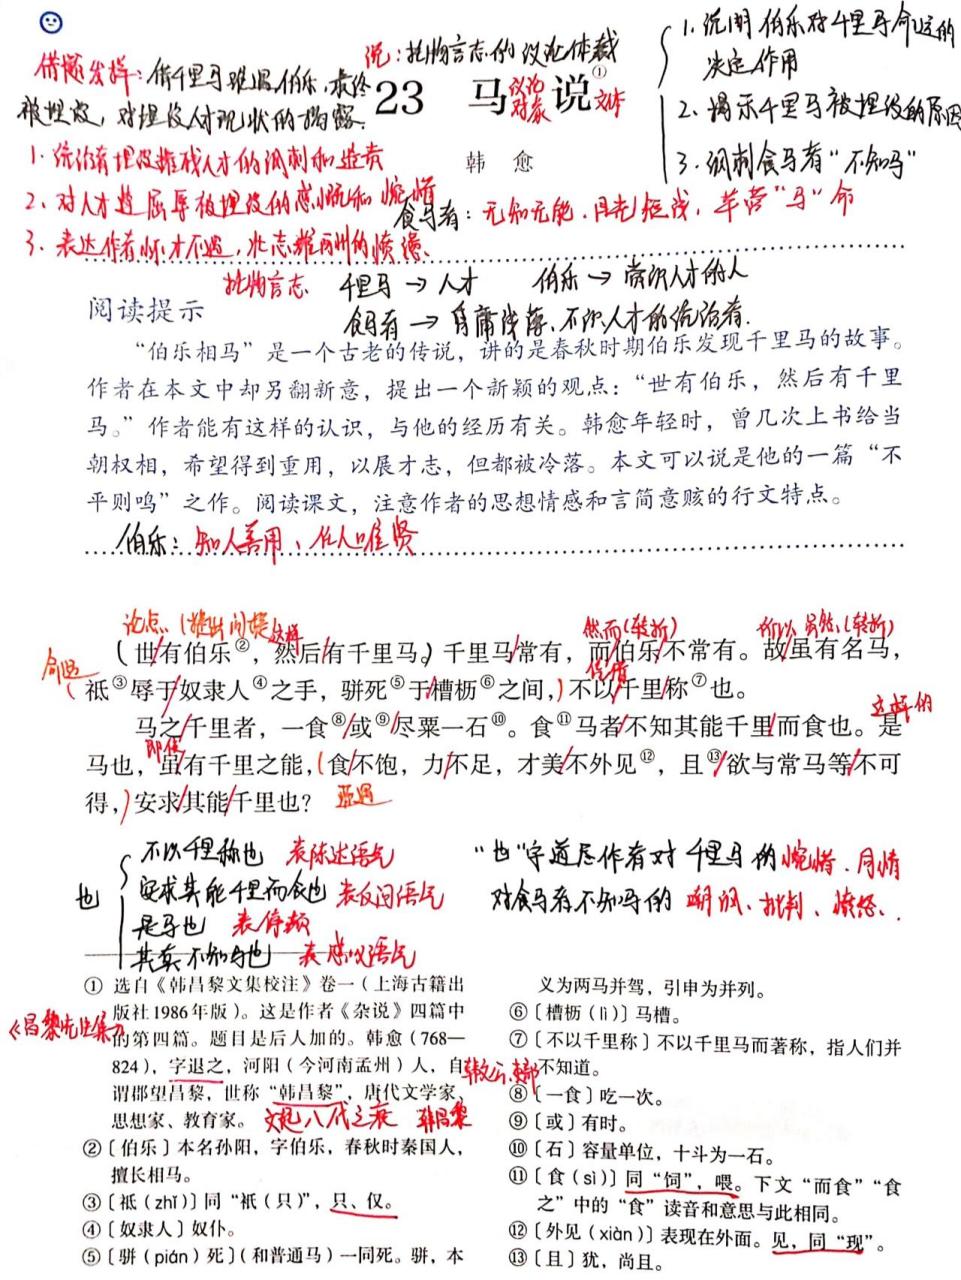 说：托物言志的议论体裁
借题发挥：借千里马难遇伯乐，最终
被埋没，对埋没人才现状的揭露.
1.说明伯乐对千里马命运的
决定作用
2.揭示千里马被埋没的原因
3.讽刺食马者“不知马”
23 马说①
议论
对象
文体
韩 愈
1.统治者埋没摧残人才的讽刺和
2、对人才遭屈辱被埋没的感慨和惋惜
3、表达作者怀才不遇，壮志难酬的愤懑、
食马者：无知无能、目光短浅、草菅“马”命
托物言志 千里马→人才 伯乐→赏识人才的人
食马者→ 浅薄、不识人才的统治者.
阅读提示
“伯乐相马”是一个古老的传说，讲的是春秋时期伯乐发现千里马的故事。
作者在本文中却另翻新意，提出一个新颖的观点：“世有伯乐，然后有千里
马。”作者能有这样的认识，与他的经历有关。韩愈年轻时，曾几次上书给当
朝权相，希望得到重用，以展才志，但都被冷落。本文可以说是他的一篇“不
平则鸣”之作。阅读课文，注意作者的思想情感和言简意赅的行文特点。
伯乐：知人善用、任人唯贤
论点（提出问题）
这样
然而（转折）
所以 虽然（转折）
（世/有伯乐②，然后/有千里马）千里马/常有，而/伯乐/不常有。故/虽有名马，
命运
（祗③辱于/奴隶人④之手，骈死⑤于/槽枥⑥之间，）不以/千里/称⑦也。
马之/千里者，一食⑧/或⑨/尽粟一石⑩。食⑪马者/不知其能千里/而食也。是
这样的
即使
马也，虽/有千里之能，（食/不饱，力/不足，才美/不外见⑫，且⑬/欲与常马等/不可
得，）安求/其能/千里也？
也
不以千里称也 表陈述语气
安求其能千里而食也 表反问语气
是马也 表停顿
其真不知马也 表感叹语气
“也”字道尽作者对千里马的惋惜、同情
对食马者不知马的嘲讽、批判、愤怒、
① 选自《韩昌黎文集校注》卷一（上海古籍出
版社1986年版）。这是作者《杂说》四篇中
《昌黎先生集》
的第四篇。题目是后人加的。韩愈（768—
824），字退之，河阳（今河南孟州）人，自
谓郡望昌黎，世称“韩昌黎”，唐代文学家、
思想家、教育家。 文起八代之衰 韩昌黎
②〔伯乐〕本名孙阳，字伯乐，春秋时秦国人，
擅长相马。
③〔祗（zhǐ）〕同“祇（只）”，只、仅。
④〔奴隶人〕奴仆。
⑤〔骈（pián）死〕（和普通马）一同死。骈，本
义为两马并驾，引申为并列。
⑥〔槽枥（lì）〕马槽。
⑦〔不以千里称〕不以千里马而著称，指人们并
不知道。
⑧〔一食〕吃一次。
⑨〔或〕有时。
⑩〔石〕容量单位，十斗为一石。
⑪〔食（sì）〕同“饲”，喂。下文“而食”“食
之”中的“食”读音和意思与此相同。
⑫〔外见（xiàn）〕表现在外面。见，同“现”。
⑬〔且〕犹，尚且。